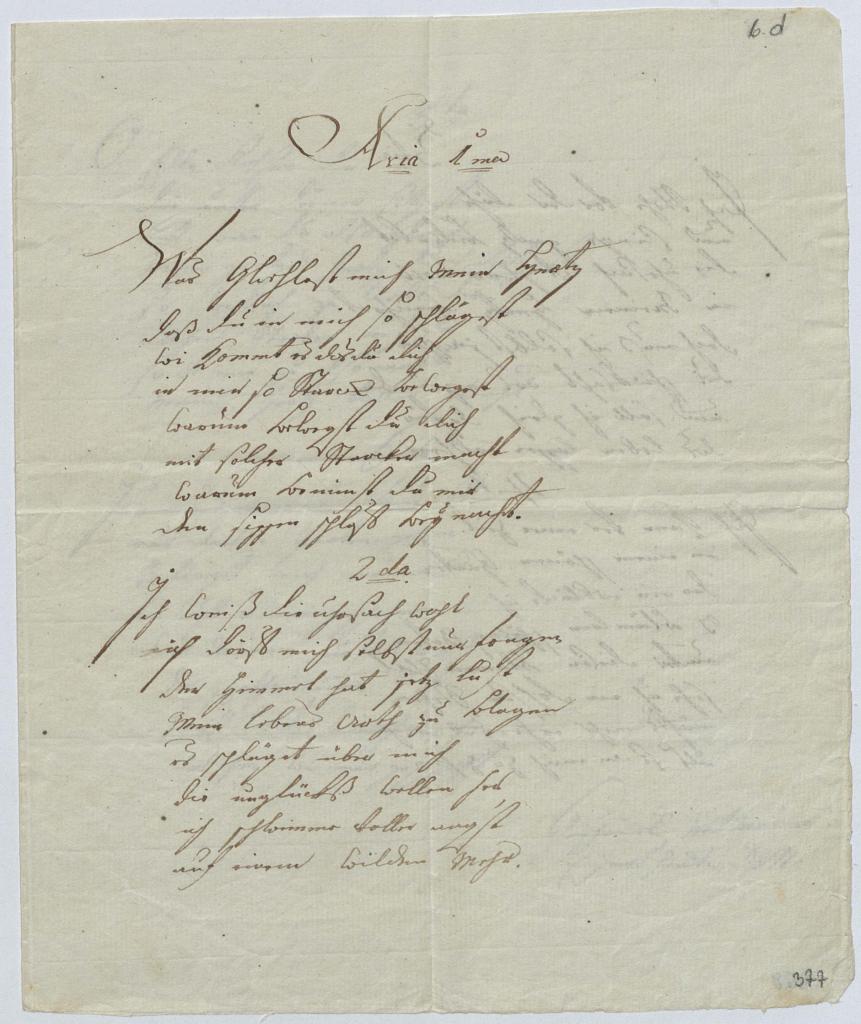 6. d
Aria 1ma
Was mich Mein Hertz
daß du in mich so schlägest
wi Kommt es das du dich
in mir so Starck bewegest
warum bewegst du dich
mit solcher Starcker macht
warum benimst du mir
den süssen schlaff bey nacht.
2da
Ich weiß die uhrsach wohl
ich dörff mich selbst nur fragen
der Himmel hat jetz lust
Mein lebens zu klagen
es schläget über mich
die unglücks wellen her
ich schwimme voller angst
auf einem wilden Mehr.
377